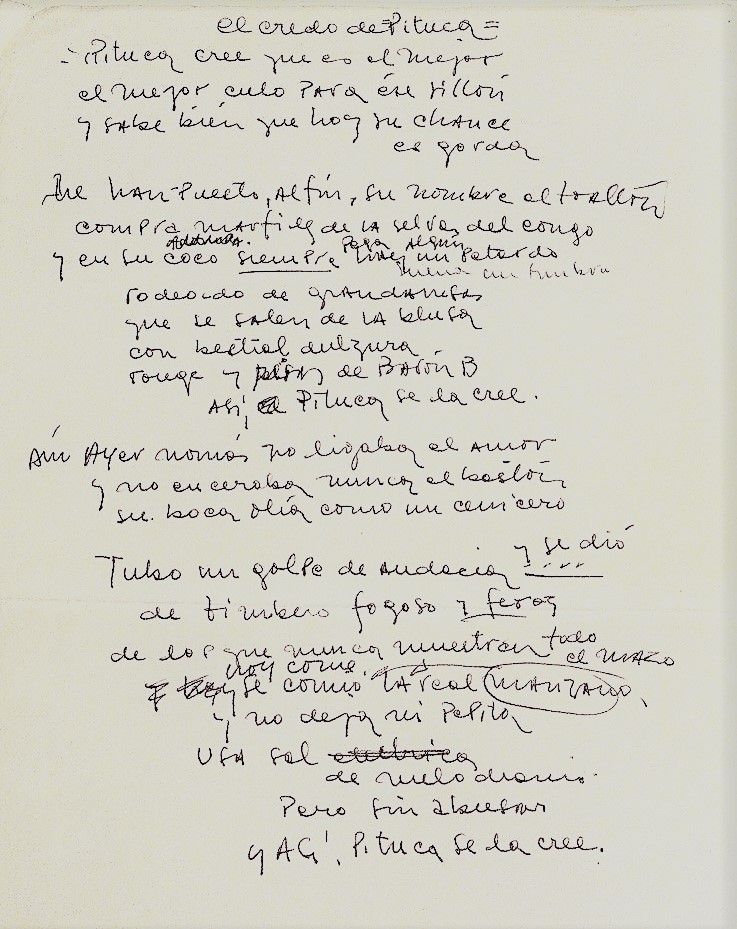 el credo de Pituca =
Pituca cree que es el mejor
el mejor culo para ése sillón
y sabe bién que hoy su chance
es gorda
Le han puesto, al fín, su nombre al toallón
compra marfiles de la selva del congo
y en su coco siempre hay un petardo
pega algún
rodeado de grandanesas
que se salen de la blusa
con bestial dulzura
rouge y de Barón B
Así, Pituca se la cree.
Aún Ayer nomás no ligaba el amor
y no enceraba nunca el bastón
su boca olía como un cenicero
Tubo un golpe de audacia y se dió
de timbero fogoso y feroz
de los que nunca muestran todo
el mazo
hoy come
y se comió la real manzana,
y no deja ni pepita
usa sal
de melodrama
Pero sin abusar
y así, Pituca se la cree.